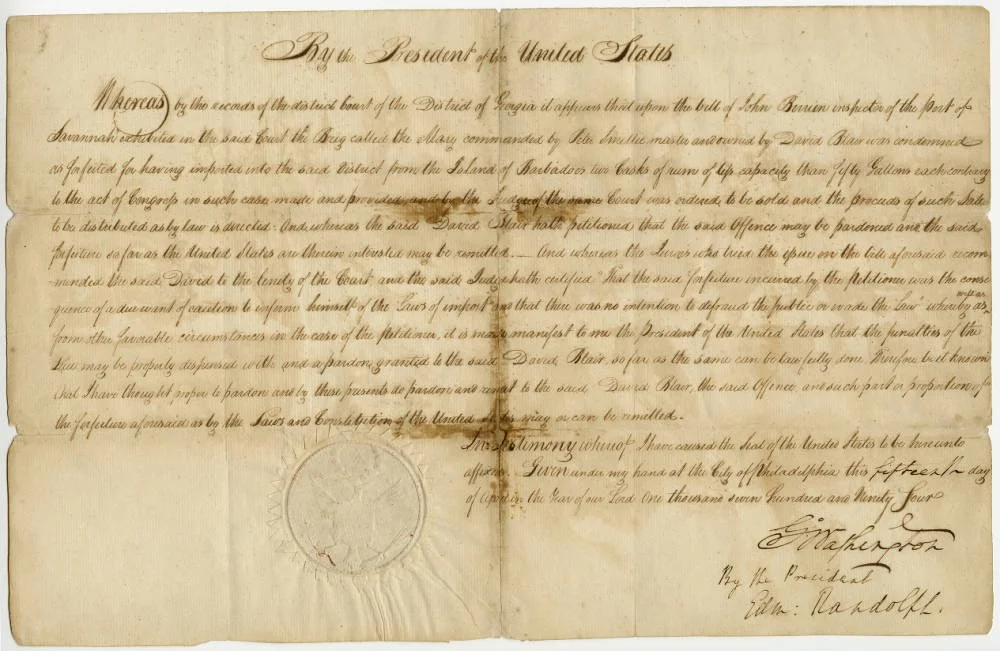 By the President of the United States
Whereas by the records of the district Court of the District of Georgia it appears that upon the bill of John Berrien inspector of the Port of
Savannah exhibited in the said Court the Brig called the Mary commanded by Peter Smellie master and owned by David Blair was condemned
as forfeited for having imported into the said District from the Island of Barbadoes two Casks of rum of less capacity than fifty Gallons each contrary
to the act of Congress in such case made and provided, and by the Judge of the same Court was ordered to be sold and the proceeds of such Sale
to be distributed as by law is directed. And whereas the said David Blair hath petitioned that the said Offence may be pardoned and the said
forfeiture so far as the United States are therein interested may be remitted. — And whereas the Jurors who tried the issue on the bill aforesaid recom-
mended the said David to the lenity of the Court and the said Judge hath certified "That the said forfeiture incurred by the petitioner was the conse
quence of a due want of caution to inform himself of the Laws of impost and that there was no intention to defraud the public or evade the Law" whereby as well as
from other favorable circumstances in the case of the Petitioner, it is made manifest to me the President of the United States that the penalties of the
Law may be properly dispensed with and a pardon granted to the said David Blair, so far as the same can be lawfully done. Therefore be it known
that I have thought proper to pardon and by these presents do pardon and remit to the said David Blair, the said Offence and such part or proportion of
the forfeiture aforesaid as by the Laws and Constitution of the United States may or can be remitted.
In Testimony whereof I have caused the Seal of the United States to be hereunto
affixed. Given under my hand at the City of Philadelphia this fifteenth day
of April in the Year of our Lord One thousand seven hundred and Ninety Four
Go Washington
By the President
Edm: Randolph.